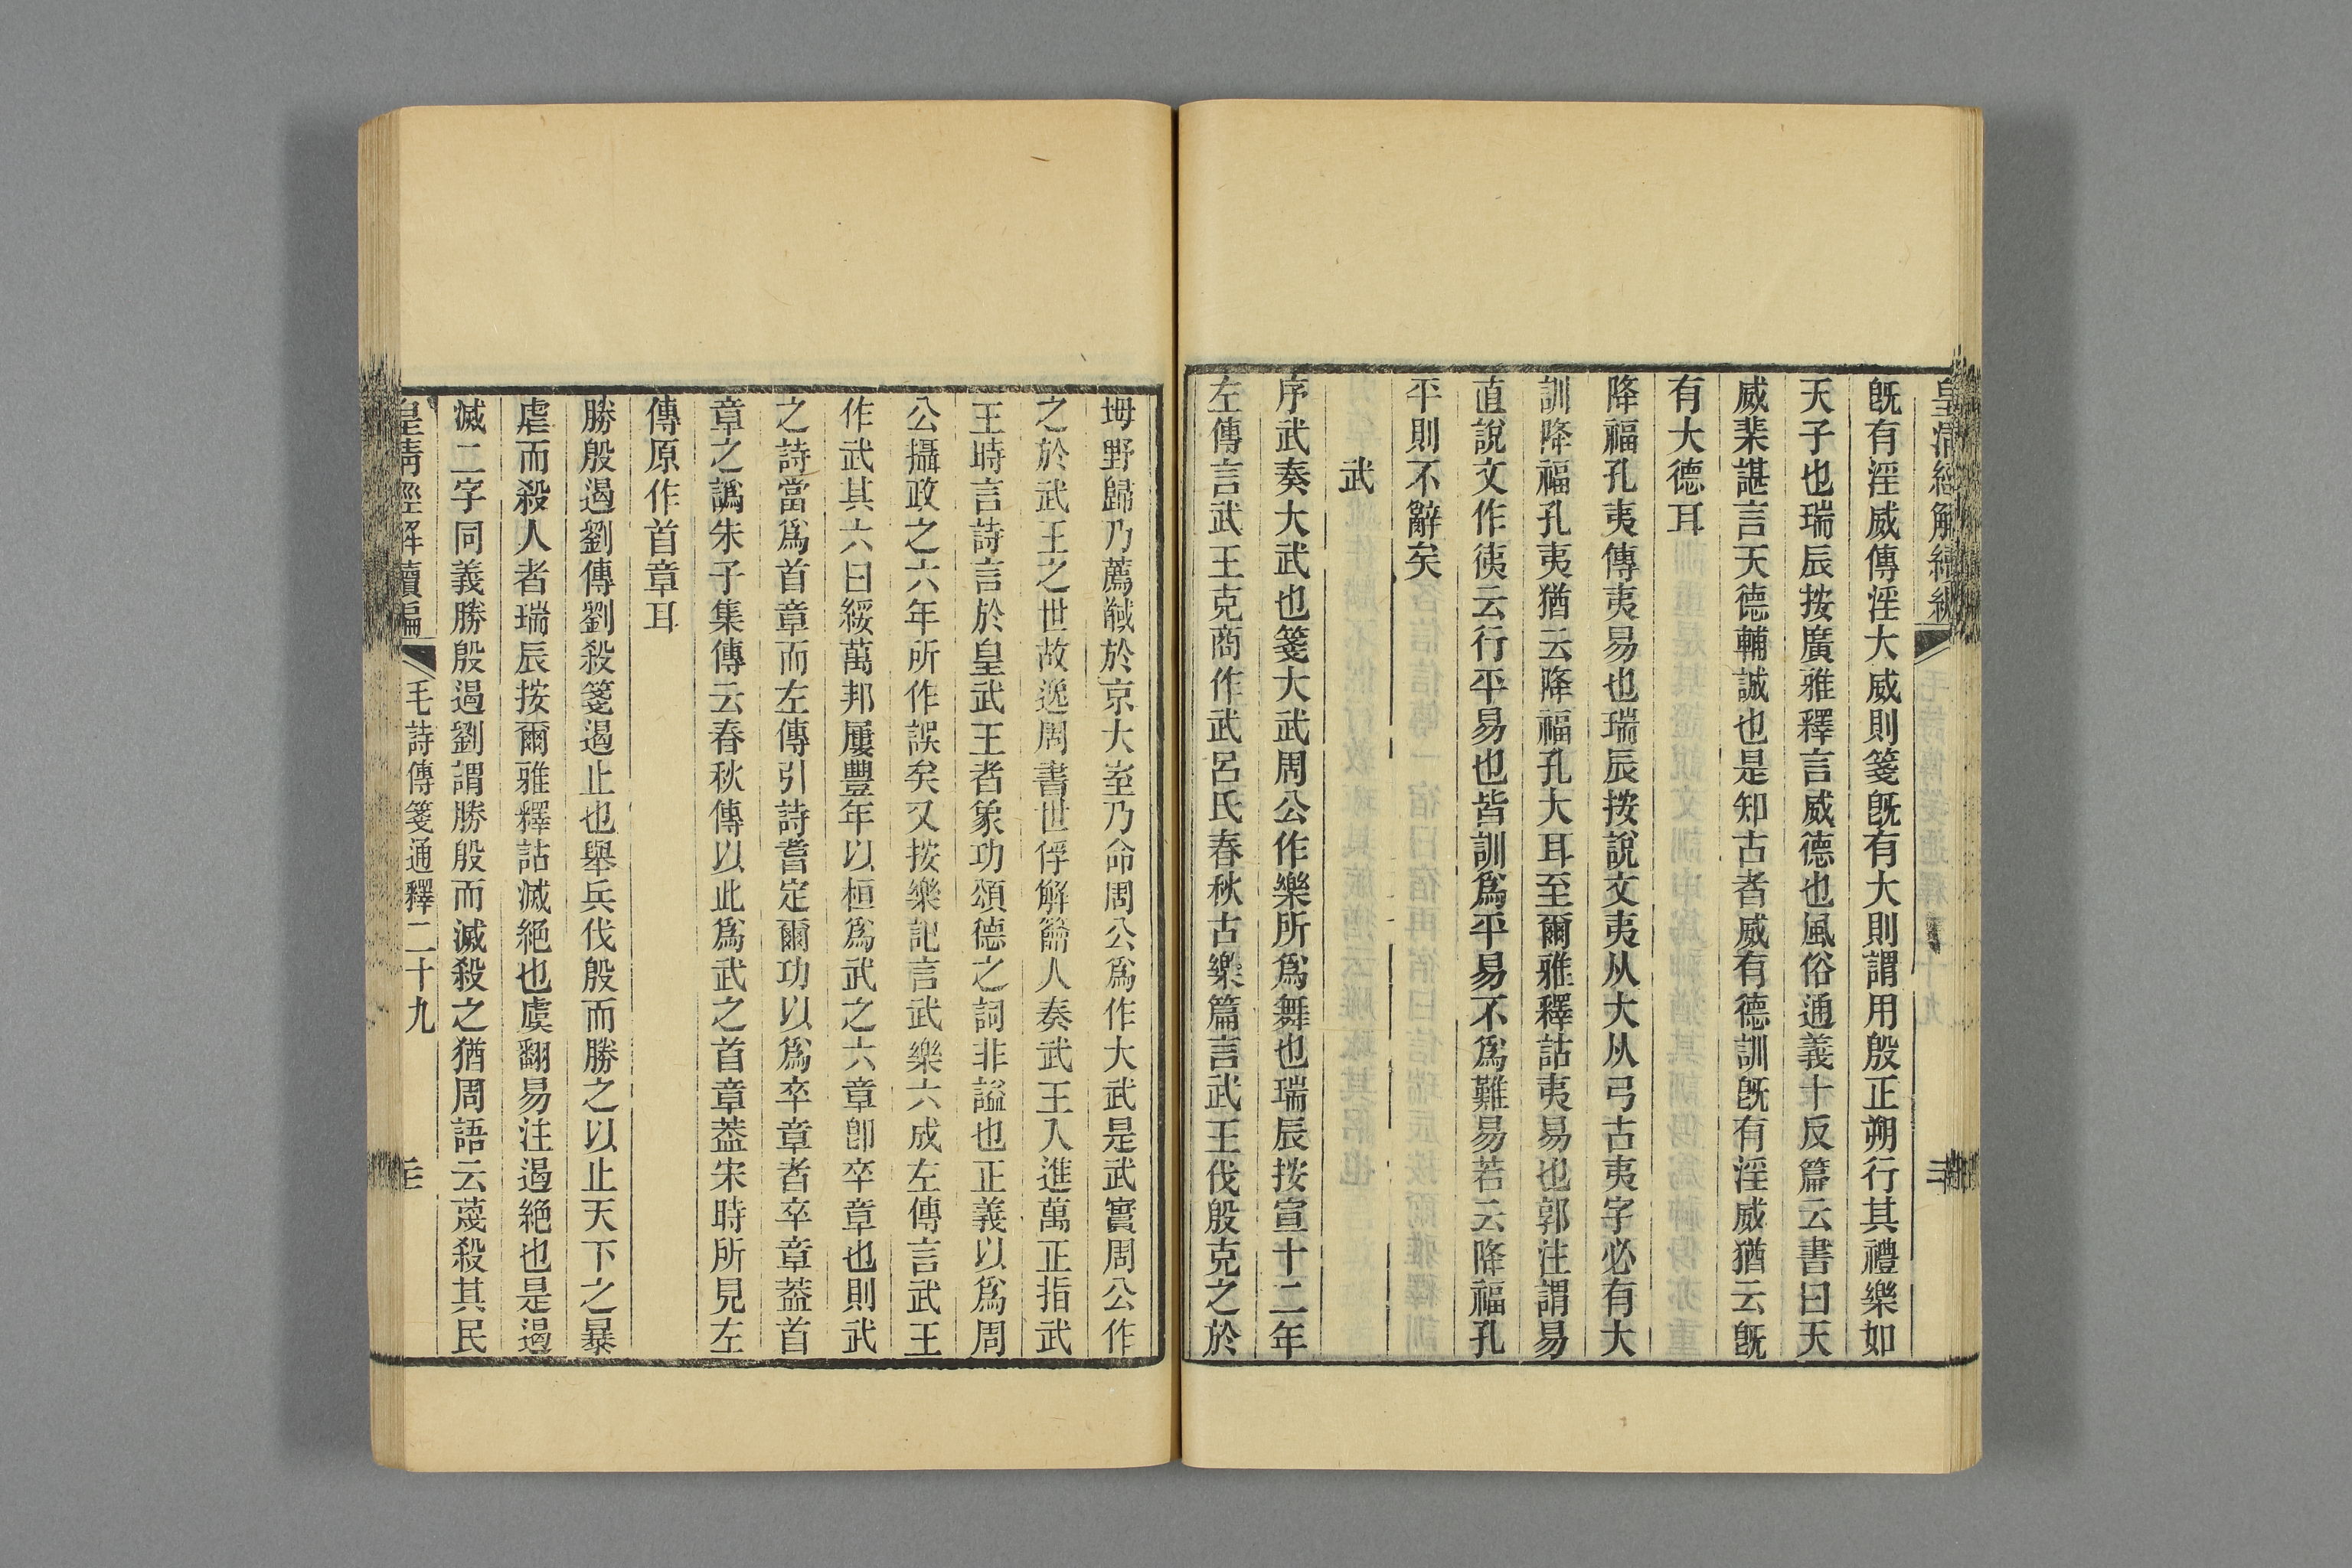 皇清經解續編
既有淫威傳淫大威則箋既有大則謂用殷正朔行其禮樂如
天子也瑞辰按廣雅釋言威德也風俗通義十反篇云書曰天
威棐諶言天德輔誠也是知古者威有德訓既有淫威猶云既
有大德耳
降福孔夷傳夷易也瑞辰按說文夷从大从弓古夷字必有大
訓降福孔夷猶云降福孔大耳至爾雅釋詁夷易也郭注謂易
直說文作徥云行平易也皆訓為平易不為難易若云降福孔
平則不辭矣
武
序武奏大武也箋大武周公作樂所為舞也瑞辰按宣十二年
左傳言武王克商作武呂氏春秋古樂篇言武王伐殷克之於
坶野歸乃薦馘於京大室乃命周公為作大武是武實周公作
之於武王之世故逸周書世俘解籥人奏武王入進萬正指武
王時言詩言於皇武王者象功頌德之詞非諡也正義以為周
公攝政之六年所作誤矣又按樂記言武樂六成左傳言武王
作武其六曰綏萬邦屢豐年以桓為武之六章卽卒章也則武
之詩當為首章而左傳引詩耆定爾功以為卒章者卒章葢首
章之譌朱子集傳云春秋傳以此為武之首章葢宋時所見左
傳原作首章耳
勝殷遏劉傳劉殺箋遏止也舉兵伐殷而勝之以止天下之暴
虐而殺人者瑞辰按爾雅釋詁滅絕也虞翻易注遏絕也是遏
滅二字同義勝殷遏劉謂勝殷而滅殺之猶周語云蔑殺其民
皇清經解續編 毛詩傳箋通釋二十九